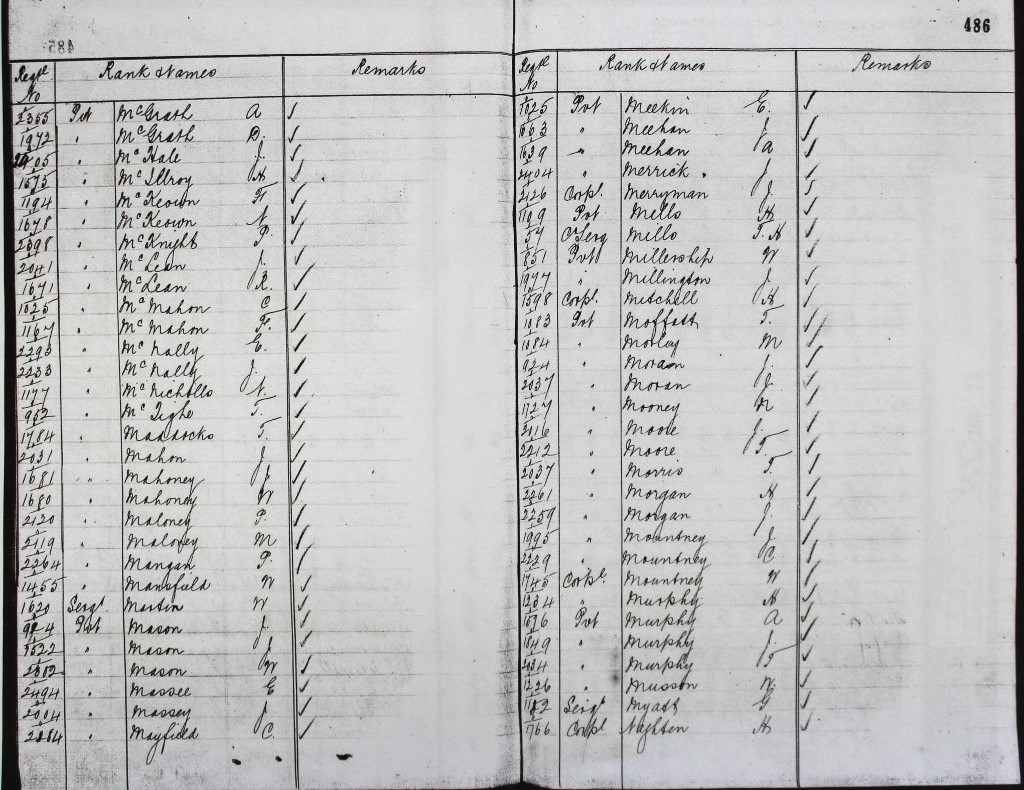 485
Regtl No Rank & Names Remarks
2365 Pvt McGrath A
1972 " McGrath D.
2405 " McHale J.
1575 " McIllroy H
1194 " McKeown F
1678 " McKeown J.
2398 " McKnight P.
2041 " McLean J.
1671 " McLean R.
1025 " McMahon C
1167 " McMahon F.
2293 " McNally E.
2233 " McNally J.
1177 " McNicholls
952 " McTighe T.
1784 " Maddocks T.
2031 " Mahon J
1681 " Mahoney J
1680 " Mahoney W
2120 " Maloney P.
2119 " Maloney M
2264 " Mangan P.
1455 " Mansfield W
1620 Sergt. Martin W
924 Pvt Mason J.
1522 " Mason J
2302 " Mason W
2494 " Massee E
2004 " Massey J
2184 " Mayfield C.
486
Regtl No Rank & Names Remarks
1825 Pvt Meekin E.
1663 " Meehan J.
1639 " Meehan A
2404 " Merrick J
2126 Corpl. Merryman J.
1109 Pvt Mills H
57 Cr Serg Mills T. H
851 Pvt Millership W
1977 " Millington J.
1598 Corpl. Mitchell H
1083 Pvt Moffatt T.
1084 " Morley M
924 " Moran J.
2037 " Moran J.
1727 " Mooney
2016 " Moore J.
2212 " Moore T.
2037 " Morris T.
2261 " Morgan H
2259 " Morgan J.
1995 " Mountney J.
2229 " Mountney C.
1745 Corpl. Mountney W
1234 " Murphy H
1676 Pvt Murphy A
1849 " Murphy J.
2034 " Murphy T
1226 " Musson W.
1182 Sergt Myatt G
766 Corpl Naghten H